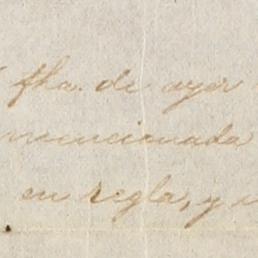 fha. de ayer
mencionada
en regla, y